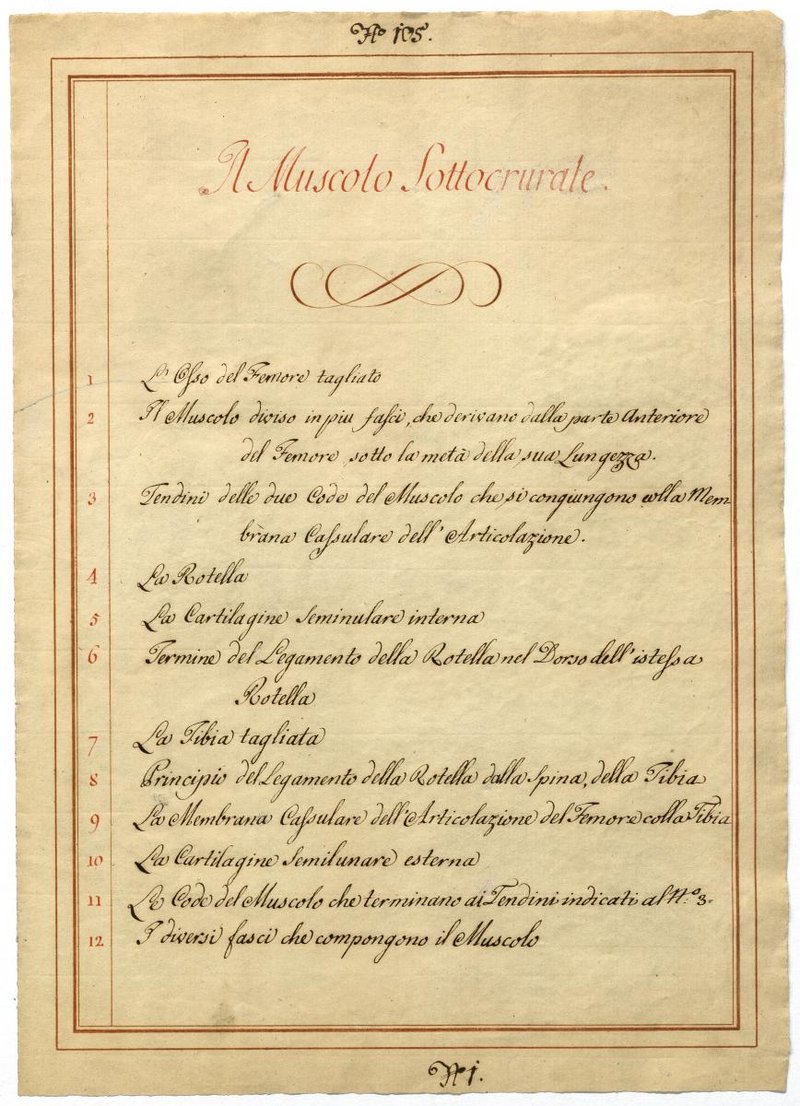 N.º 105.
Il Muscolo Sottocrurale.
1 L'Osso del Femore tagliato
2 Il Muscolo diviso in piu fasci, che derivano dalla parte Anteriore
del Femore sotto la metà della sua Lungezza.
3 Tendini delle due Code del Muscolo che si congiungono colla Mem
brana Cassulare dell'Articolazione.
4 La Rotella
5 La Cartilagine Seminulare interna
6 Termine del Legamento della Rotella nel Dorso dell'istessa
Rotella
7 La Tibia tagliata
8 Principio del Legamento della Rotella dalla Spina, della Tibia
9 La Membrana Cassulare dell'Articolazione del Femore colla Tibia
10 La Cartilagine Semilunare esterna
11 Le Code del Muscolo che terminano ai Tendini indicati al N.º 3.
12 I diversi fasci che compongono il Muscolo
N 1.